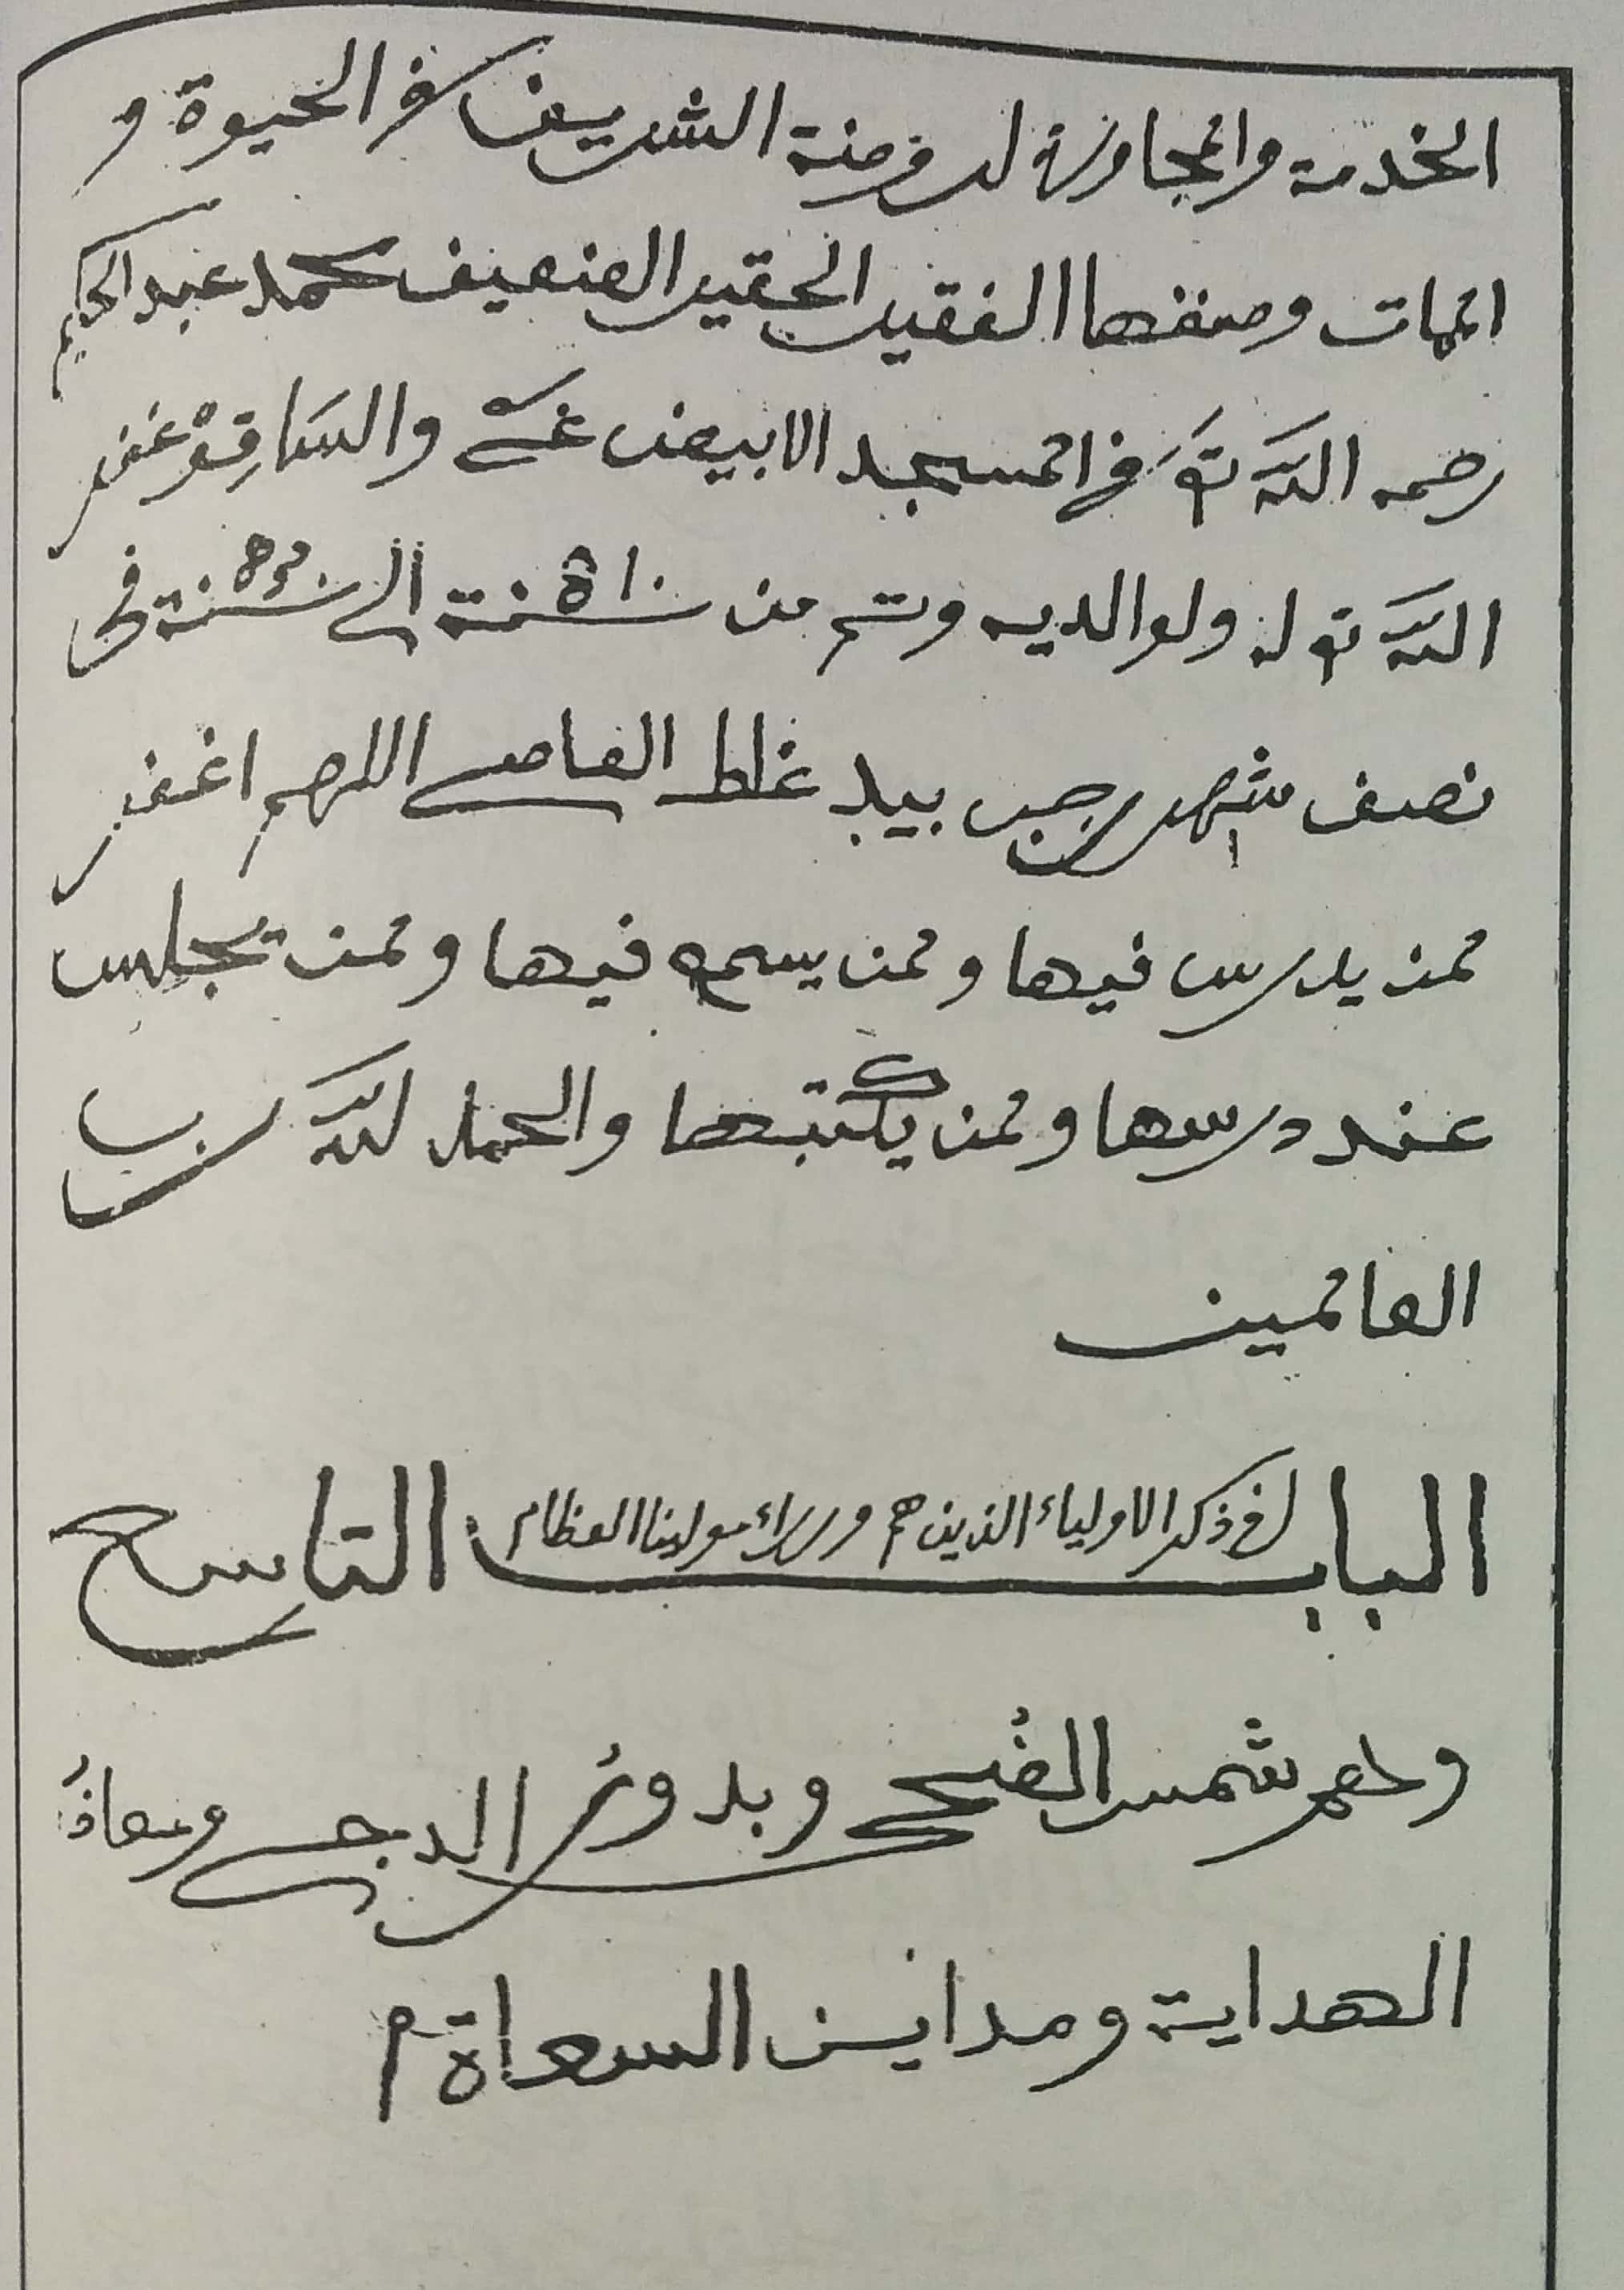 الخدمة والمجاورة لروضة الشريف في الحيوة و
الممات وصنفها الفقير الحقير الضعيف محمد عبد الحكيم
رحمه الله تع في المسجد الابيض والساقِ غفر
الله تع له ولوالديه وتم من سنة الى سنة في
نصف شهر رجب بيد غلط العاصي اللهم اغفر
لمن يدرس فيها ولمن يسمع فيها ولمن تجلس
عند درسها ولمن يكتبها والحمد لله رب
العالمين
الباب في ذكر الاولياء الذين هم وزراء مولينا العظام التاسع
وهم شمس الضُحى وبدورُ الدجى ومعادُ
الهداية ومداين السعاة م